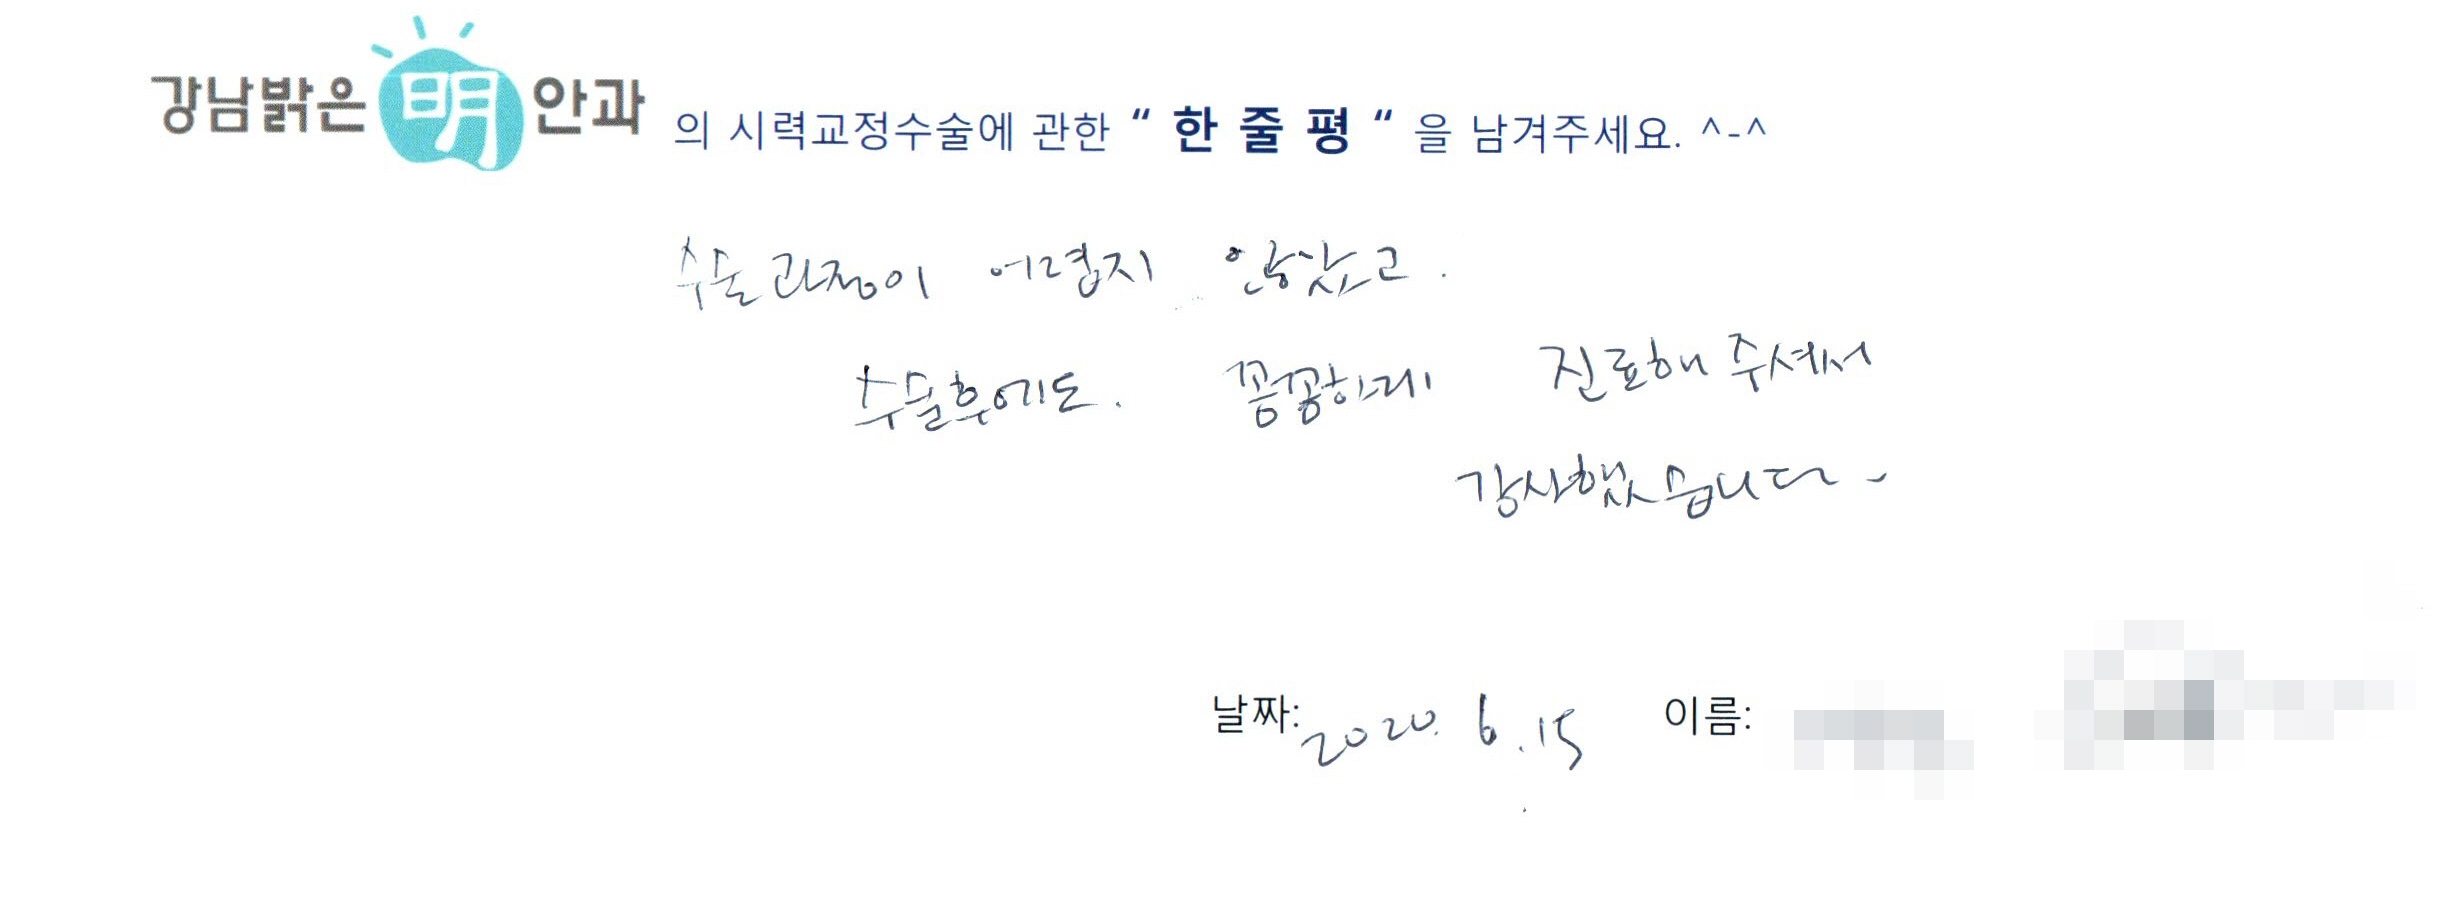 강남밝은 明 안과 의 시력교정수술에 관한 “ 한 줄 평 “ 을 남겨주세요. ^-^
수술과정이 어렵지 않았고.
수술후에도. 꼼꼼하게 진료해 주셔서
감사했습니다-
날짜: 2020. 6.15 이름: